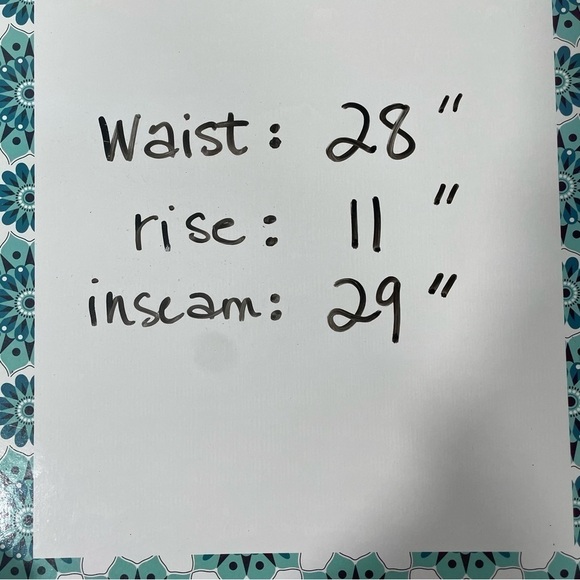 Waist: 28"
rise: 11"
inseam: 29"